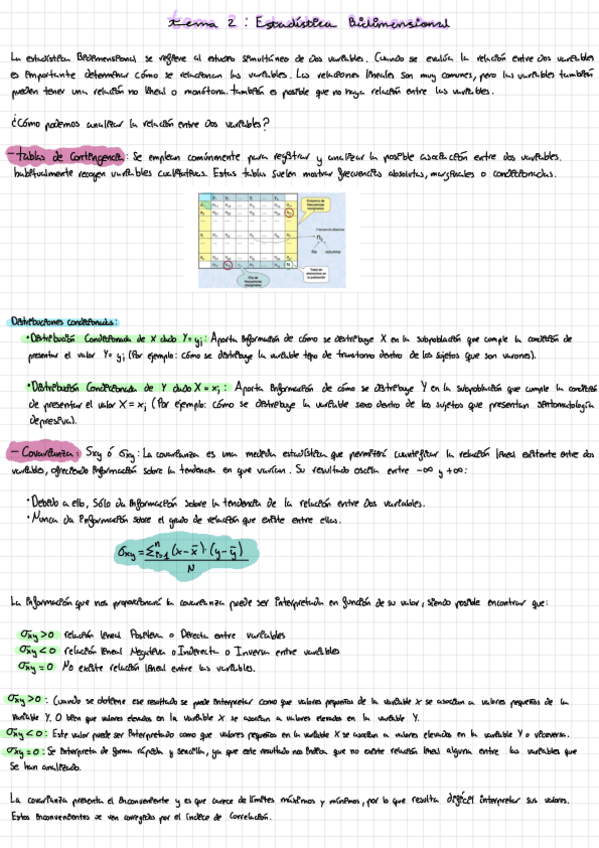 tema 2: Estadística Bidimensional
La estadística Bidimensional se refiere al estudio simultáneo de dos variables. Cuando se evalúa la relación entre dos variables
es importante determinar cómo se relacionan las variables. Las relaciones lineales son muy comunes, pero las variables también
pueden tener una relación no lineal o monótona. también es posible que no haya relación entre las variables.
¿Cómo podemos analizar la relación entre dos variables?
- tablas de Contingencia: Se emplean comúnmente para registrar y analizar la posible asociación entre dos variables.
habitualmente recogen variables cualitativas. Estas tablas suelen mostrar frecuencias absolutas, marginales o condicionadas.
Distribuciones condicionadas:
• Distribución Condicionada de X dado Y=yj: Aporta información de cómo se distribuye X en la subpoblación que cumple la condición de
presentar el valor Y=yj (Por ejemplo: cómo se distribuye la variable tipo de trastorno dentro de los sujetos que son varones).
• Distribución Condicionada de Y dado X=xi: Aporta información de cómo se distribuye Y en la subpoblación que cumple la condición
de presentar el valor X=xi (Por ejemplo: cómo se distribuye la variable sexo dentro de los sujetos que presentan sintomatología
depresiva).
- Covarianza: Sxy ó σxy: La covarianza es una medida estadística que permitirá cuantificar la relación lineal existente entre dos
variables, ofreciendo información sobre la tendencia en que varían. Su resultado oscila entre -∞ y +∞:
• Debido a ello, sólo da información sobre la tendencia de la relación entre dos variables.
• Nunca da información sobre el grado de relación que existe entre ellas.
σxy = Σⁿᵢ₌₁ (x-x̄)·(y-ȳ)
N
La información que nos proporcionará la covarianza puede ser interpretada en función de su valor, siendo posible encontrar que:
σxy>0 relación lineal Positiva o Directa entre variables
σxy<0 relación lineal Negativa o Indirecta o Inversa entre variables
σxy=0 No existe relación lineal entre las variables.
σxy>0: Cuando se obtiene ese resultado se puede interpretar como que valores pequeños de la variable x se asocian a valores pequeños de la
variable Y. O bien que valores elevados en la variable X se asocian a valores elevados en la variable Y.
σxy<0: Este valor puede ser interpretado como que valores pequeños en la variable X se asocian a valores elevados en la variable Y o viceversa.
σxy=0: Se interpreta de forma rápida y sencilla, ya que este resultado nos indica que no existe relación lineal alguna entre las variables que
se han analizado.
La covarianza presenta el inconveniente y es que carece de límites máximos y mínimos, por lo que resulta difícil interpretar sus valores.
Estos inconvenientes se ven corregidos por el índice de Correlación.